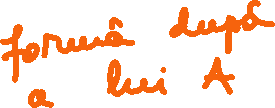 formă după
a lui A